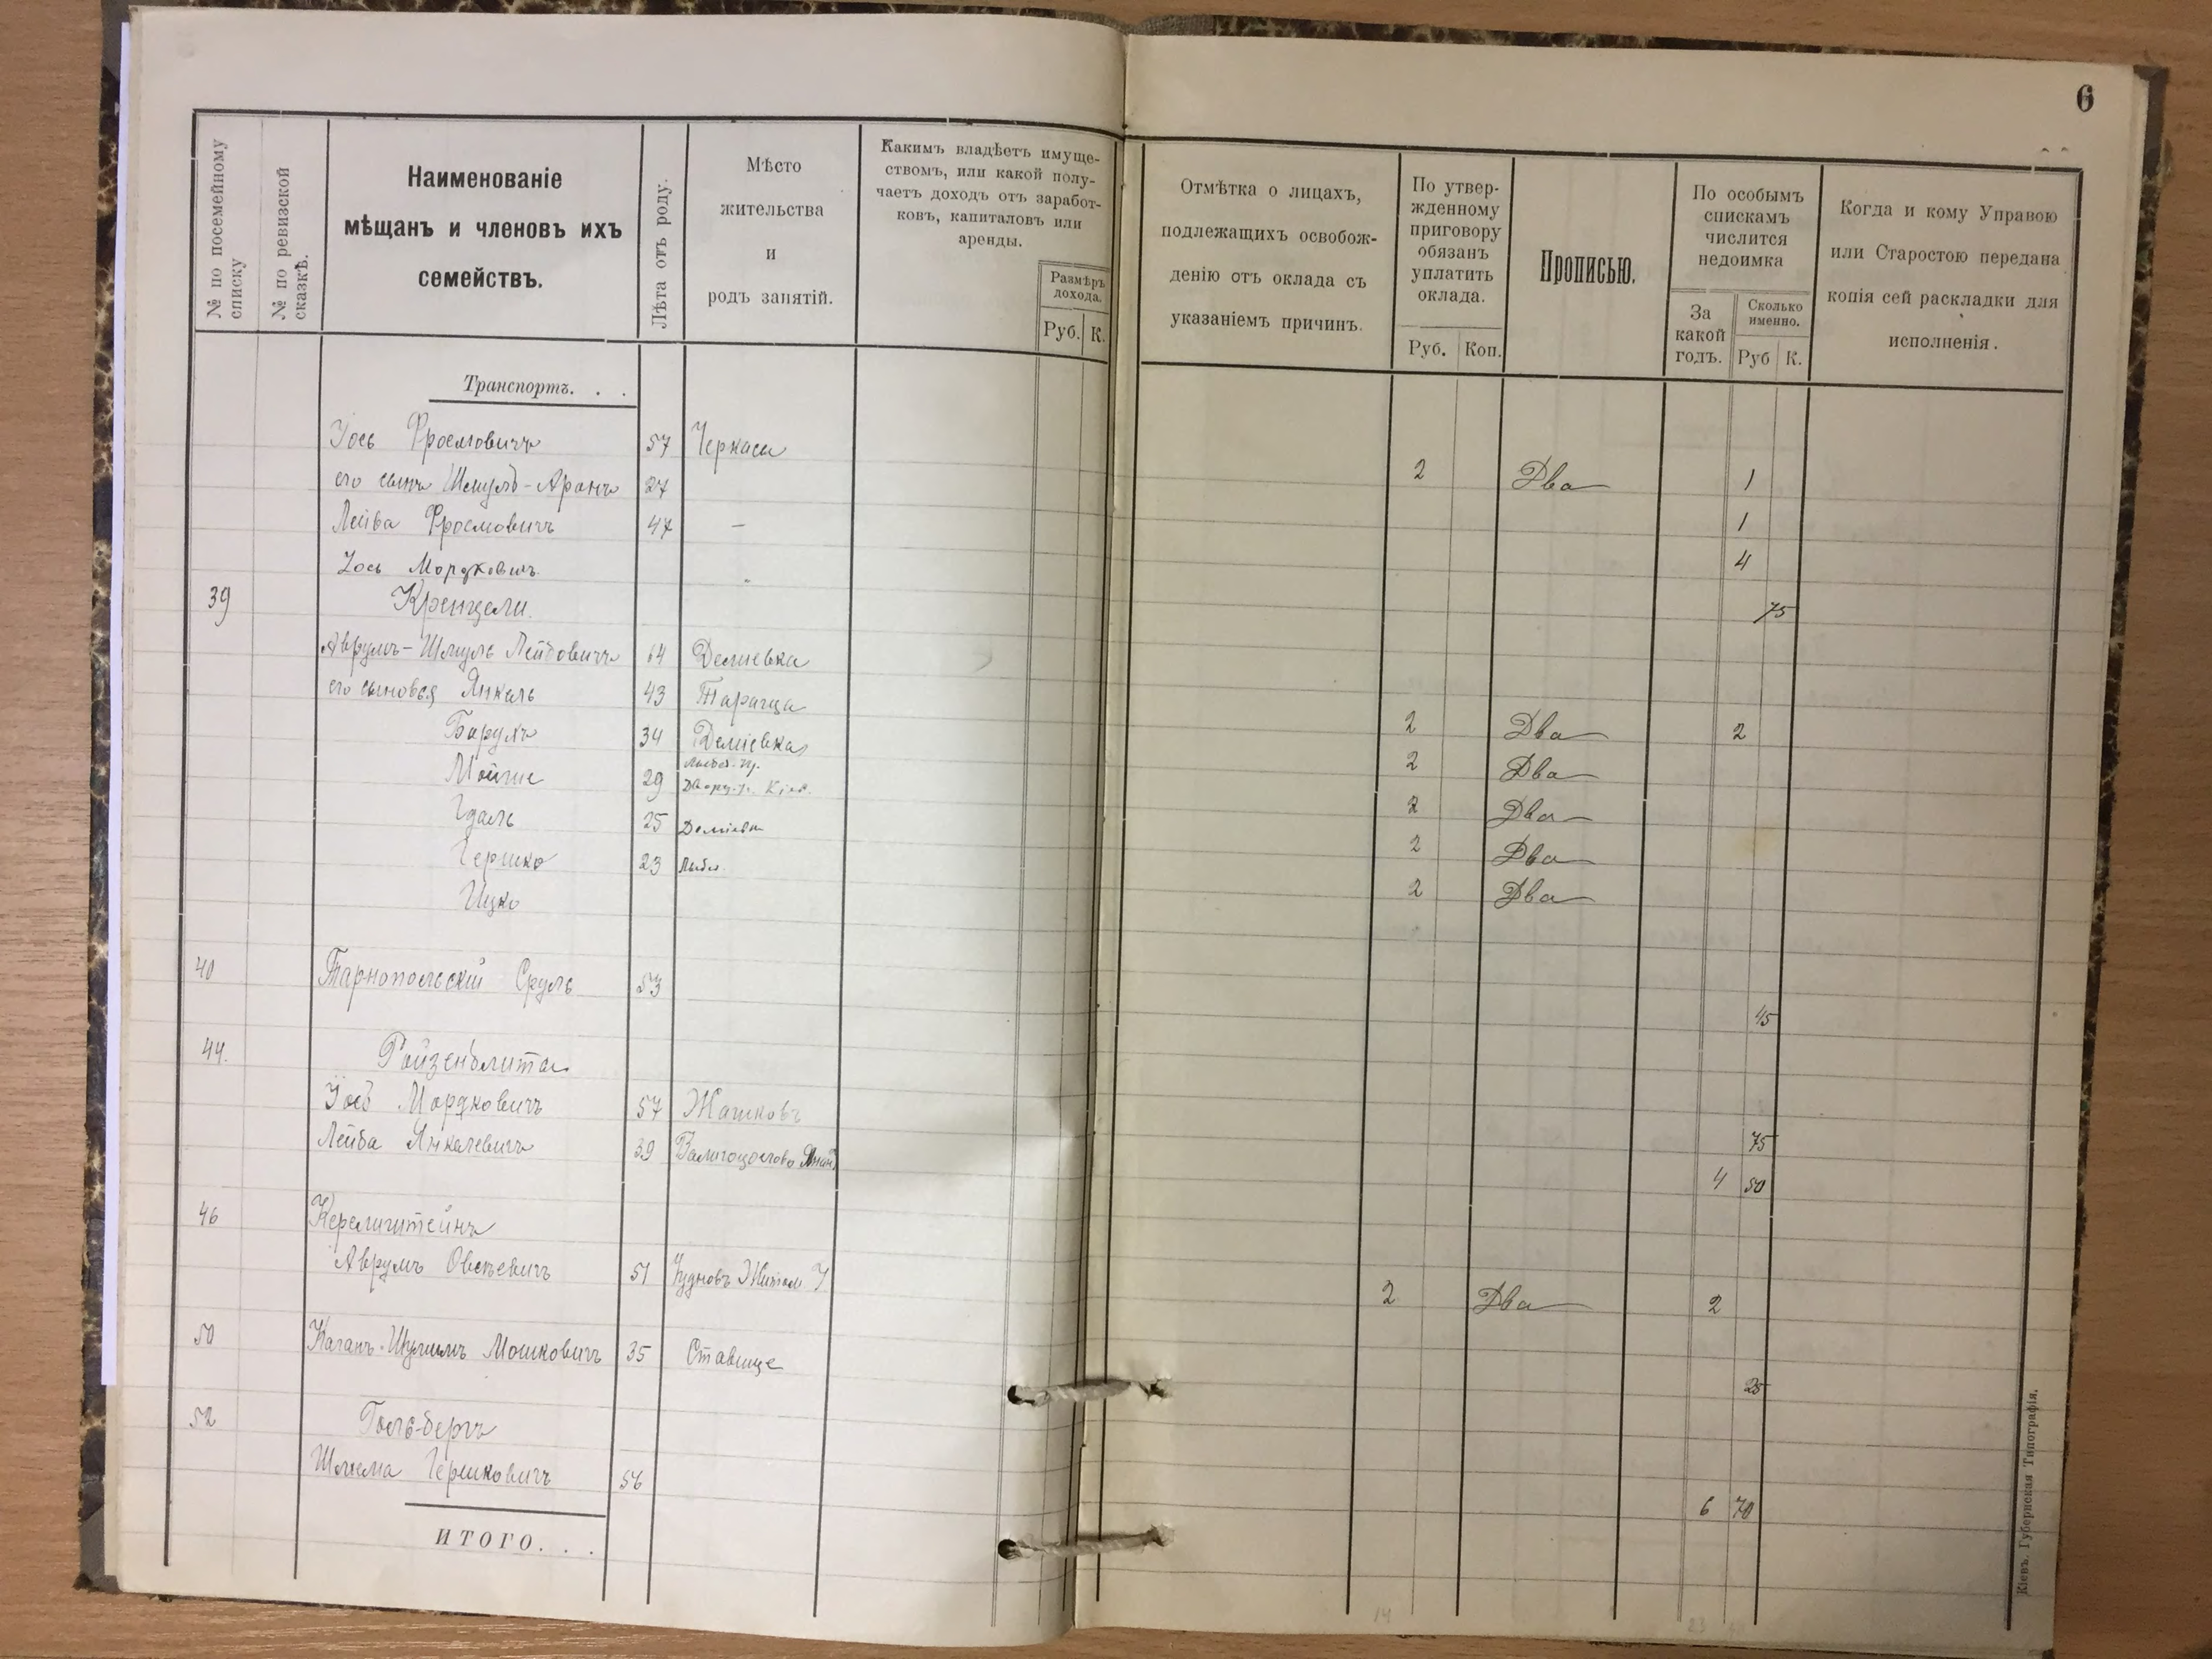 6
№ по посемейному списку
№ по ревизской сказкѣ.
Наименованіе
мѣщанъ и членовъ ихъ
семействъ.
Лѣта отъ роду.
Мѣсто
жительства
и
родъ занятій.
Какимъ владѣетъ имуще-
ствомъ, или какой полу-
чаетъ доходъ отъ заработ-
ковъ, капиталовъ или
аренды.
Размѣръ
дохода.
Руб. К.
Отмѣтка о лицахъ,
подлежащихъ освобож-
денію отъ оклада съ
указаніемъ причинъ.
По утвер-
жденному
приговору
обязанъ
уплатить
оклада.
Руб. Коп.
Прописью.
По особымъ
спискамъ
числится
недоимка
За
какой
годъ.
Сколько
именно.
Руб К.
Когда и кому Управою
или Старостою передана
копія сей раскладки для
исполненія.
Транспортъ. . .
Іось Фроимовичъ 57 Черкасы 2 Два 1
его сынъ Шмуль-Аронъ 27 1
Лейба Фроимовичъ 47 – 4
Іось Мордковичъ 75
39 Кренцели.
Аврумъ-Шмуль Лейбовичъ 64 Демиевка
его сыновья Янкель 43 Тараща 2 Два 2
Барухъ 34 Деміевка 2 Два
Мойше 29 2 Два
Гдаль 25 Деміевк 2 Два
Гершко 23 Лыбед. 2 Два
Ицко
40 Тарнопольскій Сруль 53 45
44. Ройзенблита
Іось Мордковичъ 57 Жашковъ 75
Лейба Янкелевичъ 39 4 50
46 Керемштейнъ
Аврумъ Овсеевичъ 51 Чудновъ Житом У 2 Два 2
50 Каганъ-Шулимъ Мошковичъ 35 Ставище 25
52 Голь-бергъ
Шлема Гершковичъ 56 6 70
ИТОГО. . .
14 23
Кіевъ. Губернская Типографія.